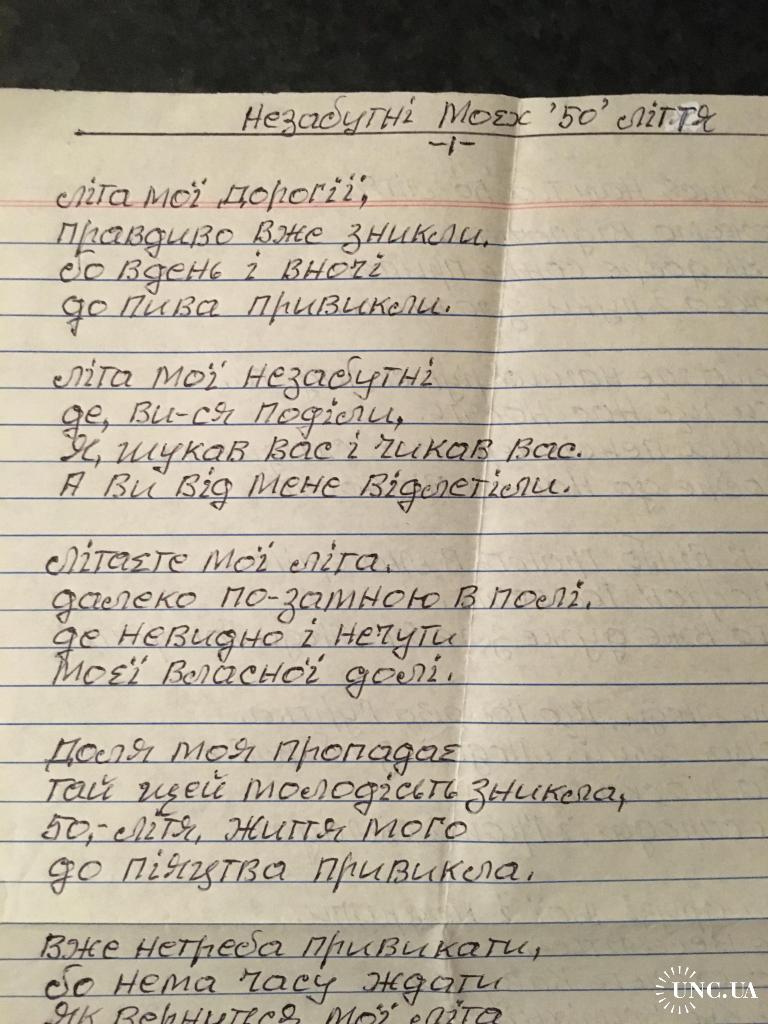 Незабутні Моєх '50' ліття
-1-
літа мої дорогії,
правдиво вже зникли.
бо вдень і вночі
до пива привикли.
літа мої незабутні
де, ви-ся поділи,
Я, шукав вас і чикав вас.
А ви від мене відлетіли.
літаєте мої літа.
далеко по-замною в полі.
де невидно і нечути
моєї власної долі.
Доля моя пропадає
тай щей молодісьть зникла,
50,-ліття, життя мого
до піяцтва привикла.
вже нетреба привикати,
бо нема часу ждати
як вернутся мої літа
UNC.UA